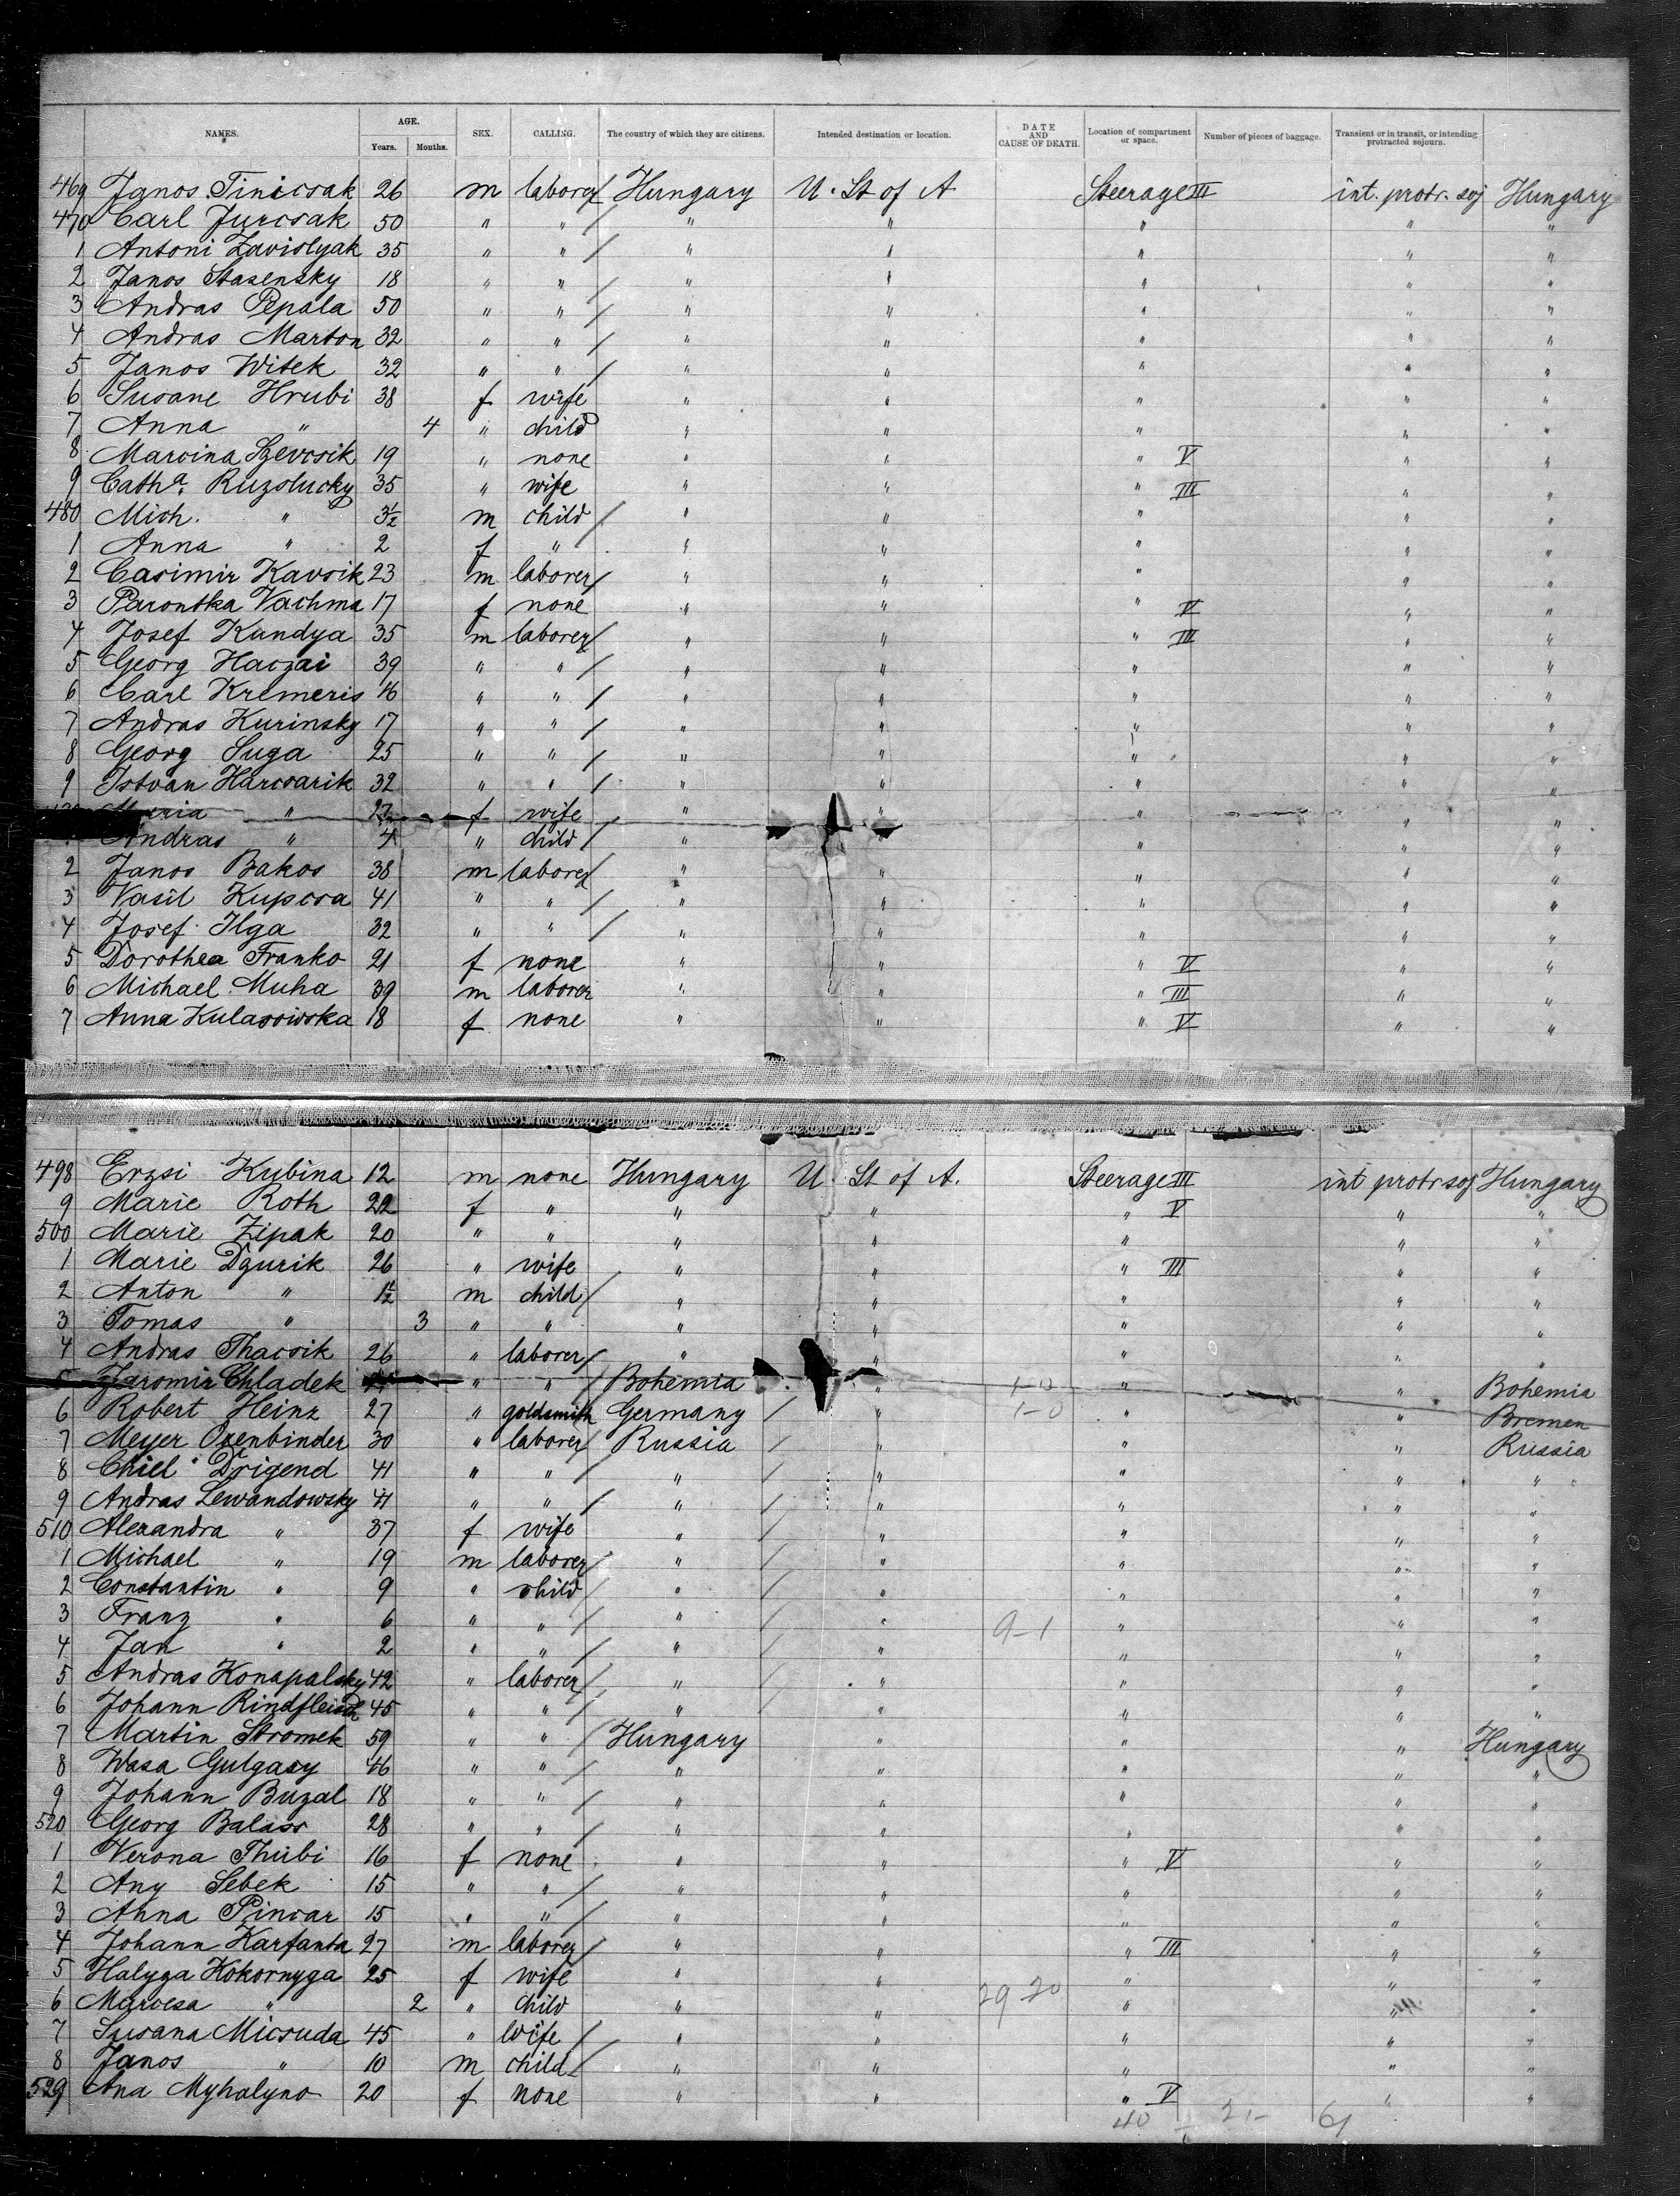 NAMES. AGE. Years. Months. SEX. CALLING. The country of which they are citizens. Intended destination or location. DATE AND CAUSE OF DEATH. Location of compartment or space. Number of pieces of baggage. Transient or in transit, or intending protracted sojourn.
469 Janos Tinicsak 26 m laborer Hungary U. St of A Steerage III int. protr. soj Hungary
470 Carl Jurcsak 50 " " " " " " "
1 Antoni Zavislyak 35 " " " " " " "
2 Janos Stasensky 18 " " " " " " "
3 Andras Pepala 50 " " " " " " "
4 Andras Marton 32 " " " " " " "
5 Janos Witek 32 " " " " " " "
6 Susane Hrubi 38 f wife " " " " "
7 Anna " 4 " child " " " " "
8 Marcina Szevcsik 19 " none " " " V " "
9 Catha. Ruzslucky 35 " wife " " " III " "
480 Mich. " 3½ m child " " " " "
1 Anna " 2 f " " " " " "
2 Casimir Kavsik 23 m laborer " " " " "
3 Parontka Vachma 17 f none " " " V " "
4 Josef Kundya 35 m laborer " " " III " "
5 Georg Haczai 39 " " " " " " "
6 Carl Kremeris 46 " " " " " " "
7 Andras Kurinsky 17 " " " " " " "
8 Georg Suga 25 " " " " " " "
9 Istvan Harcsarik 32 " " " " " " "
Maria " 27 f wife " " " " "
Andras " 4 " child " " " " "
2 Janos Bakos 38 m laborer " " " " "
3 Vasil Kupcsa 41 " " " " " " "
4 Josef Ilga 32 " " " " " " "
5 Dorothea Franko 21 f none " " " V " "
6 Michael Muha 39 m laborer " " " III " "
7 Anna Kulasowska 18 f none " " " V " "
498 Erzsi Kubina 12 m none Hungary U. St of A. Steerage III int protr soj Hungary
9 Marie Roth 22 f " " " " V " "
500 Marie Zipak 20 " " " " " " "
1 Marie Dzurik 26 " wife " " " III " "
2 Anton " 1½ m child " " " " "
3 Tomas " 3 " " " " " " "
4 Andras Thacsik 26 " laborer " " " " "
5 Jaromir Chladek " " Bohemia " 1-0 " " Bohemia
6 Robert Heinz 27 " goldsmith Germany " 1-0 " " Bremen
7 Meyer Oxenbinder 30 " laborer Russia " " " Russia
8 Chiel Drigend 41 " " " " " " "
9 Andras Lewandowsky 41 " " " " " " "
510 Alexandra " 37 f wife " " " " "
1 Michael " 19 m laborer " " " " "
2 Constantin " 9 " child " " " " "
3 Franz " 6 " " " " 9-1 " " "
4 Jan " 2 " " " " " " "
5 Andras Konapalsky 42 " laborer " " " " "
6 Johann Rindfleisch 45 " " " " " " "
7 Martin Stromek 59 " " Hungary " " " Hungary
8 Wasa Gulgasy 46 " " " " " " "
9 Johann Buzal 18 " " " " " " "
520 Georg Balass 28 " " " " " " "
1 Verona Thubi 16 f none " " " V " "
2 Any Sebek 15 " " " " " " "
3 Anna Pincar 15 " " " " " " "
4 Johann Karfanta 27 m laborer " " " III " "
5 Halyga Kokornyga 25 f wife " " 29 20 " " "
6 Marcesa " 2 " child " " " " "
7 Susana Micsuda 45 " wife " " " " "
8 Janos " 10 m child " " " " "
529 Ana Myhalyno 20 f none " " " V " "
40 21- 61